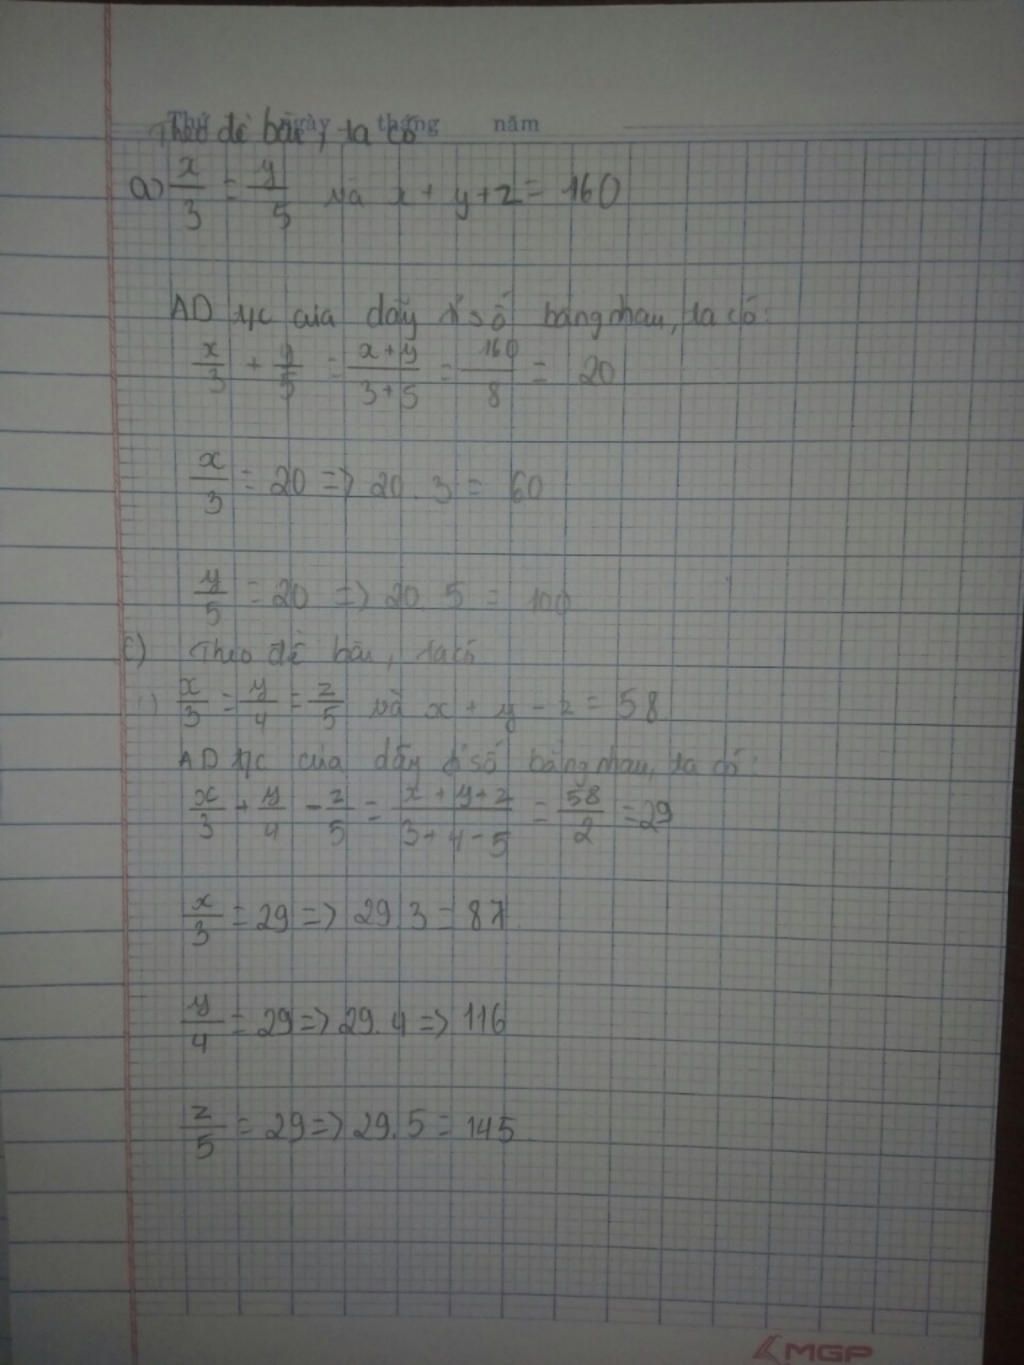 Thứ ngày tháng năm
Theo đề bài, ta có
a) x/3 = y/5 và x + y + z = 160
AD t/c của dãy tỉ số bằng nhau, ta có:
x/3 + y/5 = x+y/3+5 = 160/8 = 20
x/3 = 20 => 20 . 3 = 60
y/5 = 20 => 20 . 5 = 100
c) Theo đề bài, ta có
x/3 = y/4 = z/5 và x + y - z = 58
AD t/c của dãy tỉ số bằng nhau, ta có:
x/3 + y/4 - z/5 = x+y+z/3+4-5 = 58/2 = 29
x/3 = 29 => 29.3 = 87
y/4 = 29 => 29.4 => 116
z/5 = 29 => 29.5 = 145
MGP